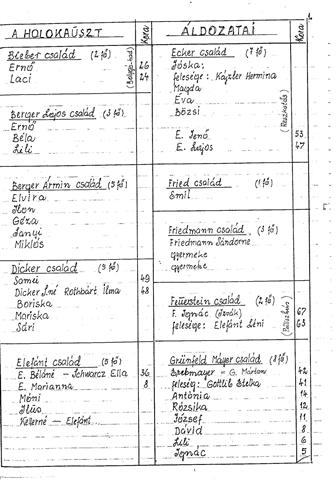 A HOLOKAUSZT
Kora
Bieber család (2 fő)
Ernő 26
Laci 24
Berger Lajos család (3 fő)
Ernő
Béla
Lili
Berger Ármin család (5 fő)
Elvira
Ilon
Géza
Sanyi
Miklós
Dicker család (9 fő)
Samei 49
Dicker Lné Rothbárt Ilma 48
Boriska
Mariska
Sári
Elefánt család (5 fő)
E. Béláné - Schwarcz Ella 36
E. Marianna 8
Móni
Iluo
Kellerné - Elefánt
ÁLDOZATAI
Kora
Ecker család (7 fő)
Jóska,
felesége: Käszler Hermina
Magda
Éva
Bözsi
E. Jenő 53
E. Lajos 47
Fried család (1 fő)
Emil
Friedmann család (3 fő)
Friedmann Sándorné
gyermeke
gyermeke
Feuerstein család (2 fő)
F. Ignác (Izsák) 67
felesége: Elefánt Léni 63
Grünfeld Mayer család (8 fő)
= G. Márton 42
feleség: Gottlib Etelka 41
Antónia 14
Rózsika 12
József 11
Dávid 8
Lili 6
Ignác 5